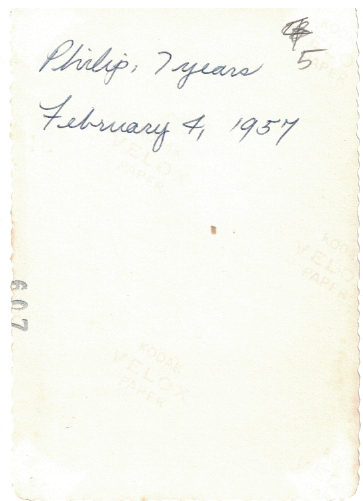 5
Philip, 7 years
February 4, 1957
KODAK
VELOX
PAPER
KODAK
VELOX
PAPER
607
KODAK
VELOX
PAPER